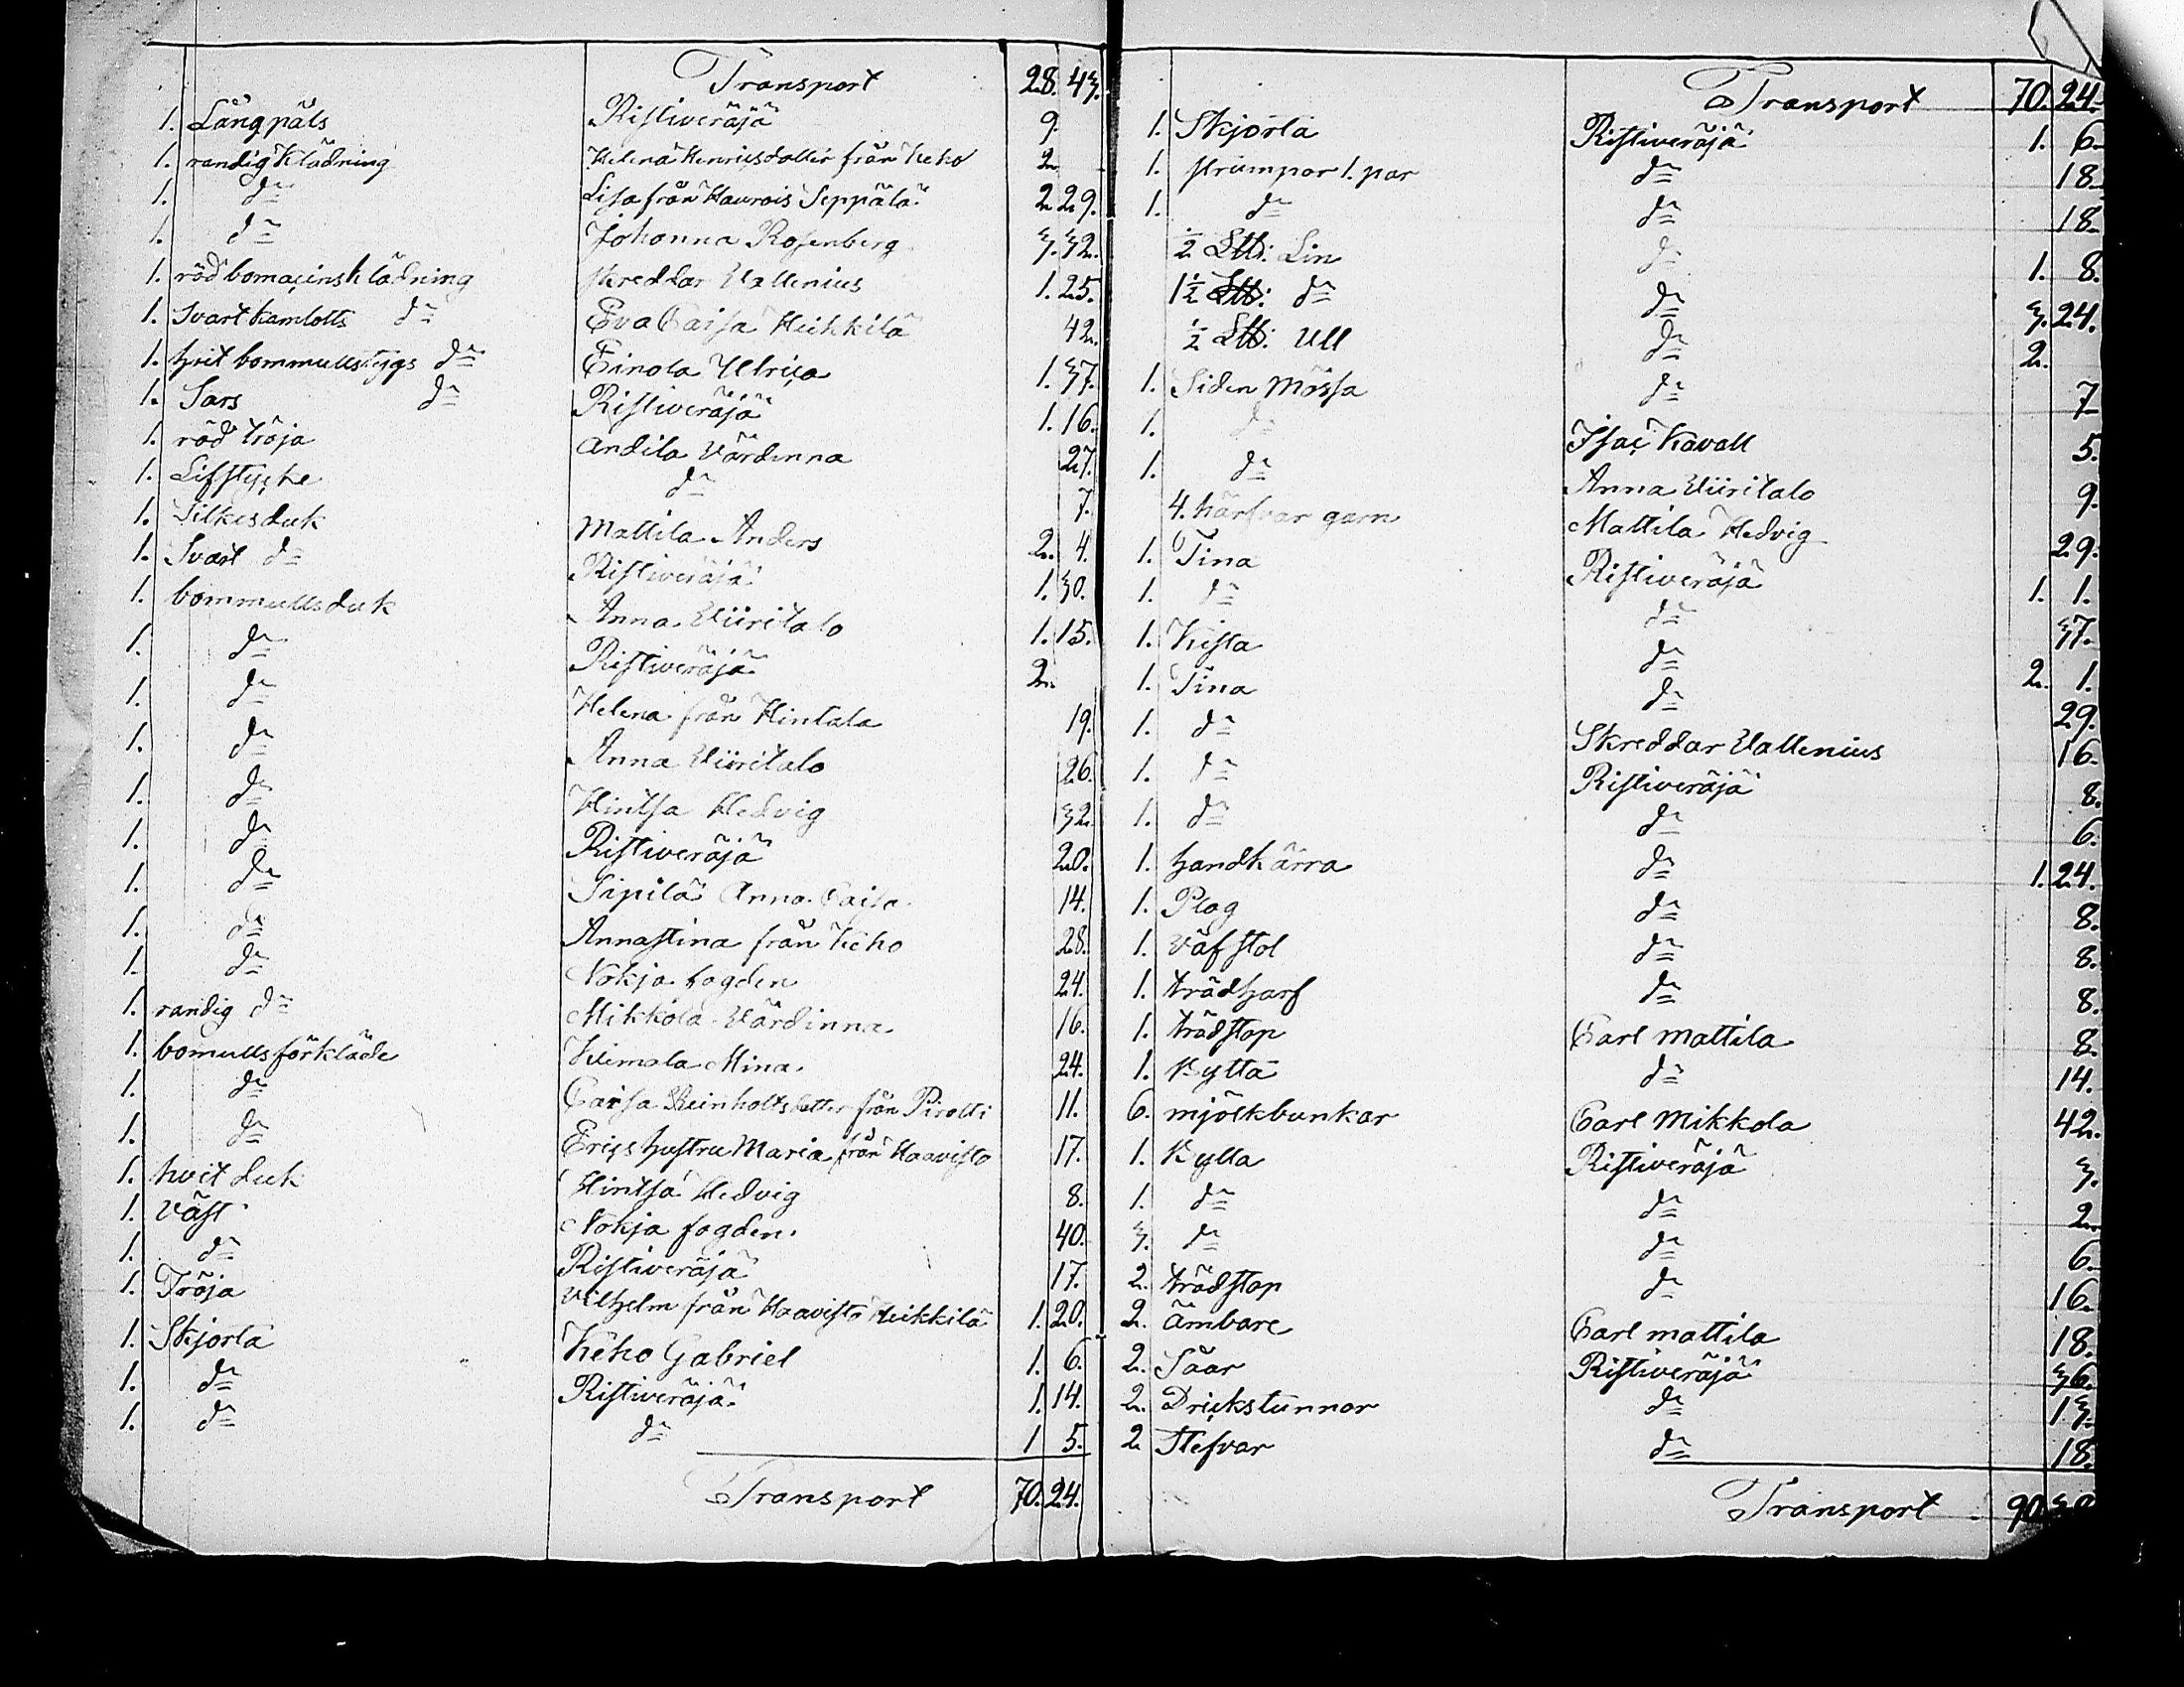 Transport 28. 43.
1. Långpäls Ristiveräjä 9.
1. randig Klädning Helena Henricsdotter från Keho 2.
1. do Lisa från Haurois Seppälä 2. 29.
1. do Johanna Rosenberg 3. 32.
1. röd bomacinsklädning Skreddar Vallenius 1. 25.
1. Svart kamlotts do Eva Caisa Heikkilä 42.
1. hvit bommullstygs do Einola Ulrica 1. 37.
1. Sars do Ristiveräjä 1. 16.
1. röd tröja Andila Värdinna 27.
1. Lifstycke do 7.
1. Silkesduk Mattila Anders 2. 4.
1. Svart do Ristiveräjä 1. 30.
1. bommullsduk Anna Viiritalo 1. 15.
1. do Ristiveräjä 2.
1. do Helena från Hintala 19.
1. do Anna Viiritalo 26.
1. do Hintsa Hedvig 32.
1. do Ristiveräjä 20.
1. do Sipilä Anna Caisa 14.
1. do Annastina från Keho 28.
1. do Nokja fogden 24.
1. randig do Mikkola Värdinna 16.
1. bomullsförkläde Kiimala Mina 24.
1. do Caisa Reinholtsdotter från Pirotti 11.
1. do Erics hustru Maria från Haavisto 17.
1. hvit duk Hintsa Hedvig 8.
1. väst Nokja fogden 40.
1. do Ristiveräjä 17.
1. Tröja Vilhelm från Haavisto Heikkilä 1. 20.
1. Skjorta Keho Gabriel 1. 6.
1. do Ristiveräjä 1. 14.
1. do do 1 5.
Transport 70. 24.
Transport 70. 24.
1. Skjorta Ristiveräjä 1. 6.
1. strumpor 1. par do 18.
1. do do 18.
½ L℔: Lin do 1. 8.
1½ L℔: do do 3. 24.
½ L℔: Ull do 2.
1. Siden Mössa do 7.
1. do Isac Kavall 5.
1. do Anna Viiritalo 9.
4. härfvar garn Mattila Hedvig 29.
1. Tina Ristiveräjä 1. 1.
1. do do 37.
1. Kista do 2. 1.
1. Tina do 29.
1. do Skreddar Vallenius 16.
1. do Ristiveräjä 8.
1. do do 6.
1. handkärra do 1. 24.
1. Plog do 8.
1. väfstol do 8.
1. trädharf do 8.
1. trädstop Carl Mattila 8.
1. Bytta do 14.
6. mjölkbunkar Carl Mikkola 42.
1. Bytta Ristiveräjä 3.
1. do do 2.
3. do do 6.
2. trädstop do 16.
2. ämbare Carl mattila 18.
2. Såar Ristiveräjä 36.
2. Drickstunnor do 13.
2 Stefvar do 18.
Transport 90.